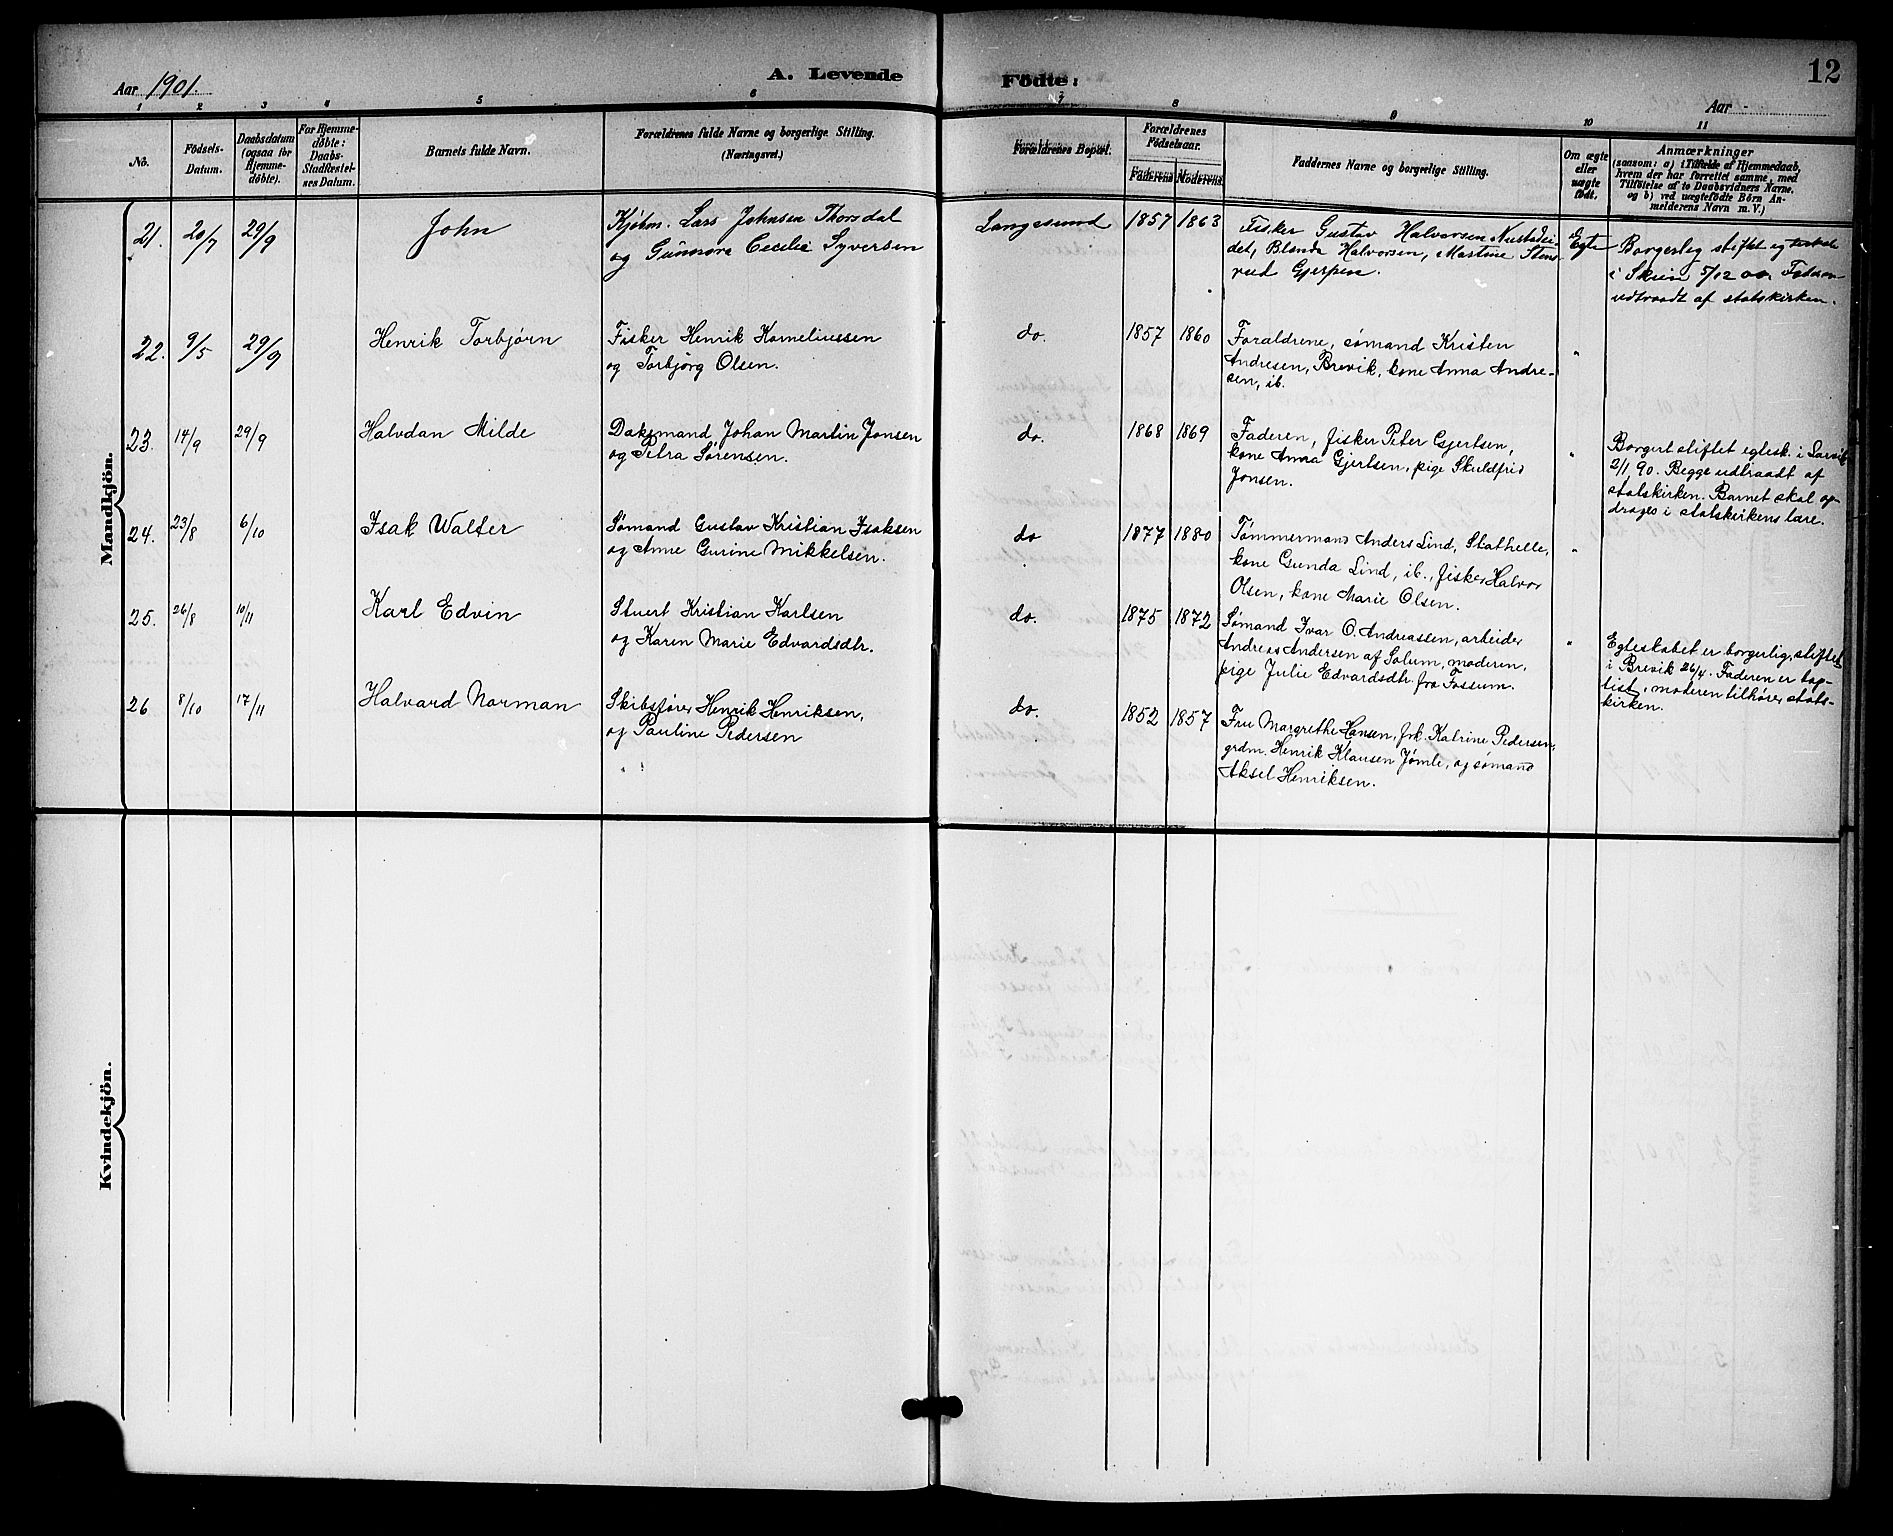 Aar 1901.
A. Levende
Födte:
12
Aar
1 2 3 4 5 6 7 8 9 10 11
No.
Födsels-
Datum.
Daabsdatum
(ogsaa for
Hjemme-
döbte).
For Hjemme-
döbte:
Daabs-
Stadfæstel-
ses Datum.
Barnets fulde Navn.
Forældrenes fulde Navne og borgerlige Stilling.
(Næringsvei.)
Forældrenes Bopæl.
Forældrenes
Födselsaar.
Faderens Moderens.
Faddernes Navne og borgerlige Stilling.
Om ægte
eller
uægte
födt.
Anmærkninger
(saasom: a) i Tilfælde af Hjemmedaab,
hvem der har forrettet samme, med
Tilföielse af to Daabsvidners Navne,
og b) ved uægtefödte Börn An-
melderens Navn m. V.)
Mandkjön.
21. 20/7 29/9 John
Kjøbm. Lars Johnsen Thorsdal
og Gunnora Cecilia Syversen
Langesund 1857 1863
Fisker Gustav Halvorsen Nustadei-
det, Blenda Halvorsen, Martine Stens-
rud Gjerpen.
Egte
Borgerlig stiftet
i Skien 5/12 00. Faderen
udtraadt af statskirken.
22. 9/5 29/9 Henrik Torbjørn
Fisker Henrik Korneliussen
og Torbjørg Olsen.
do. 1857 1860
Foraldrene, sømand Kristen
Andresen, Brevik, kone Anna Andre-
sen, ib.
"
23. 14/9 29/9 Halvdan Milde
Johan Martin Jonsen
og Petra Sørensen.
do. 1868 1869
Faderen, fisker Peter Gjertsen,
kone Anna Gjertsen, pige Skuldfrid
Jonsen.
"
Borgerl. stiftet egtesk. i Larvik
2/1 90. Begge udtraadt af
statskirken. Barnet skal op-
drages i statskirkens lære.
24. 23/8 6/10 Isak Walter
Sømand Gustav Kristian Isaksen
og Anne Gurine Mikkelsen.
do 1877 1880
Tømmermand Anders Lind, Stathelle,
kone Gunda Lind, ib., fisker Halvor
Olsen, kone Marie Olsen.
"
25. 26/8 10/11 Karl Edvin
Stuert Kristian Karlsen
og Karen Marie Edvardsdtr.
do. 1875 1872
Sømand Ivar O. Andreassen, arbeider
Andreas Andersen af Solum, moderen,
pige Julie Edvardsdtr. fra Fossum.
"
Egteskabet er borgerlig, stiftet
i Brevik 26/4. Faderen er bap-
tist, moderen tilhører stats-
kirken.
26 8/10 17/11 Halvard Norman
Skibsfører Henrik Henriksen,
og Pauline Pedersen
do. 1852 1857
Fru Margrethe Hansen, frk. Katrine Pedersen,
grdm. Henrik Klausen Jømle, og sømand
Aksel Henriksen.
Kvindekjön.